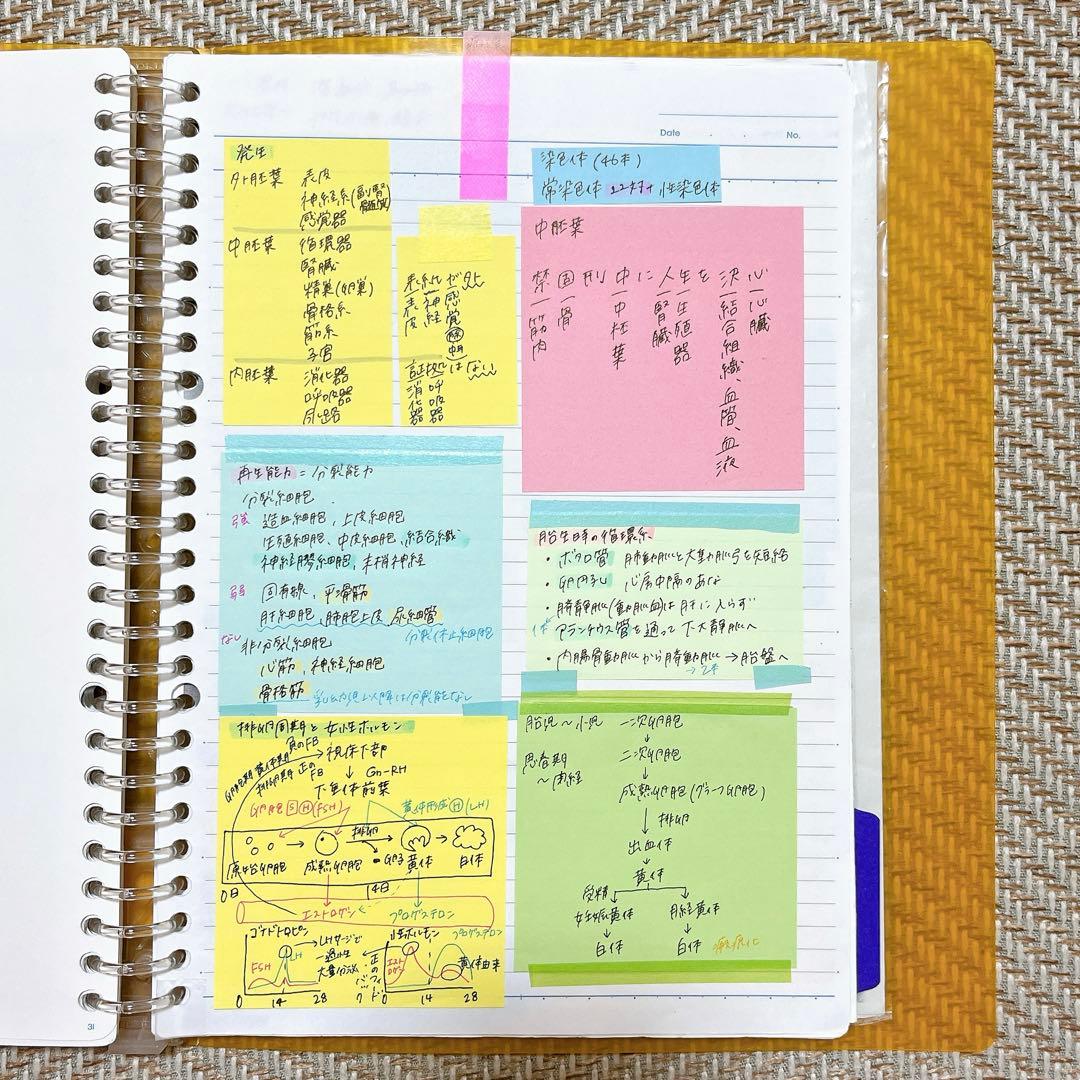 Date . . No.
発生
外胚葉 表皮
神経系(副腎髄質)
感覚器
中胚葉 循環器
腎臓
精巣(卵巣)
骨格系
筋系
子宮
内胚葉 消化器
呼吸器
尿路
表紙ぜ外
表皮
神経
感覚
証拠はない
消化器
呼吸器
染色体(46本)
常染色体 22対+性染色体
中胚葉
心―心臓
決―結合組織、血管、血液
人生を
生殖器
腎臓
中に
中胚葉
刑
固―骨
禁―筋肉
再生能力=分裂能力
分裂細胞
強 造血細胞、上皮細胞
生殖細胞、中皮細胞、結合織
神経膠細胞、末梢神経
弱 固有線、平滑筋
肝細胞、肺胞上皮、尿細管
分裂休止細胞
なし 非分裂細胞
心筋、神経細胞
骨格筋 乳幼児以降は分裂能なし
胎生時の循環系
・ボタロ管 肺動脈と大動脈弓を短絡
・卵円孔 心房中隔のあな
・臍静脈(動脈血)は肝に入らず
アランチウス管を通って下大静脈へ
・内腸骨動脈から臍動脈→胎盤へ
→2本
排卵周期と女性ホルモン
卵胞期 黄体期 負のFB
排卵期 正のFB
視床下部
↓ Gn-RH
下垂体前葉
卵胞S H (FSH)
黄体形成H (LH)
排卵
原始卵胞 成熟卵胞 卵子 黄体 白体
0日 14日
エストロゲン プロゲステロン
ゴナドトロピン
FSH LH
LHサージで
一過性
大量分泌
正のフィードバック
0 14 28
性ホルモン
エストロゲン
プロゲステロン
黄体由来
0 14 28
胎児~小児 一次卵胞
↓
思春期 二次卵胞
~閉経 ↓
成熟卵胞(グラーフ卵胞)
↓ 排卵
出血体
↓
黄体
受精
妊娠黄体 月経黄体
↓ ↓
白体 白体 瘢痕化
31